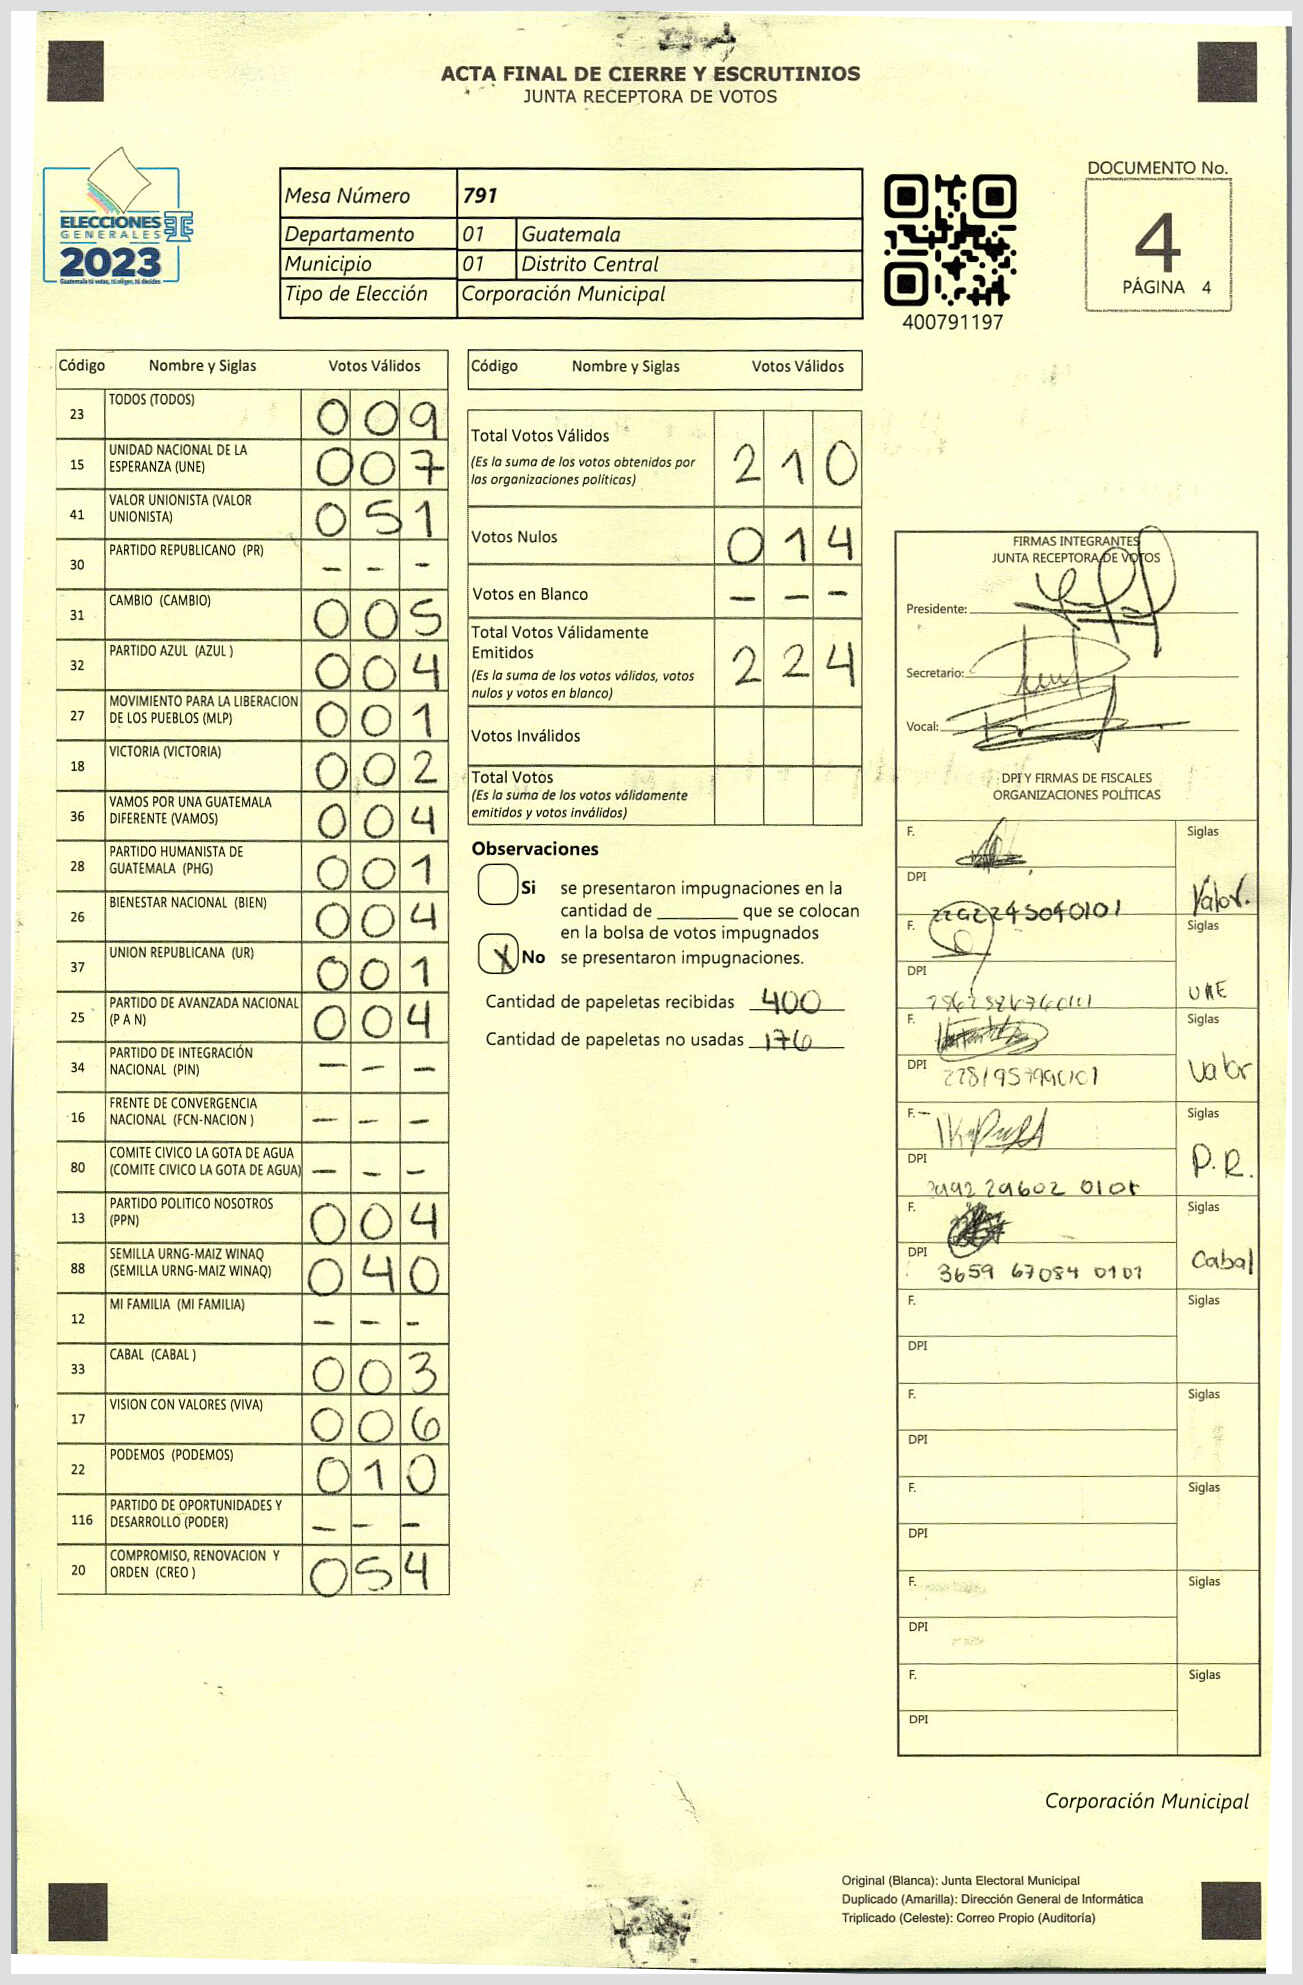 ACTA FINAL DE CIERRE Y ESCRUTINIOS
JUNTA RECEPTORA DE VOTOS
ELECCIONES
GENERALES
2023
Guatemala tú votas, tú eliges, tú decides
Mesa Número 791
Departamento 01 Guatemala
Municipio 01 Distrito Central
Tipo de Elección Corporación Municipal
400791197
DOCUMENTO No.
4
PÁGINA 4
Código Nombre y Siglas Votos Válidos
23 TODOS (TODOS) 009
15 UNIDAD NACIONAL DE LA
ESPERANZA (UNE) 007
41 VALOR UNIONISTA (VALOR
UNIONISTA) 051
30 PARTIDO REPUBLICANO (PR) - - -
31 CAMBIO (CAMBIO) 005
32 PARTIDO AZUL (AZUL ) 004
27 MOVIMIENTO PARA LA LIBERACION
DE LOS PUEBLOS (MLP) 001
18 VICTORIA (VICTORIA) 002
36 VAMOS POR UNA GUATEMALA
DIFERENTE (VAMOS) 004
28 PARTIDO HUMANISTA DE
GUATEMALA (PHG) 001
26 BIENESTAR NACIONAL (BIEN) 004
37 UNION REPUBLICANA (UR) 001
25 PARTIDO DE AVANZADA NACIONAL
(P A N) 004
34 PARTIDO DE INTEGRACIÓN
NACIONAL (PIN) - - -
16 FRENTE DE CONVERGENCIA
NACIONAL (FCN-NACION ) - - -
80 COMITE CIVICO LA GOTA DE AGUA
(COMITE CIVICO LA GOTA DE AGUA) - - -
13 PARTIDO POLITICO NOSOTROS
(PPN) 004
88 SEMILLA URNG-MAIZ WINAQ
(SEMILLA URNG-MAIZ WINAQ) 040
12 MI FAMILIA (MI FAMILIA) - - -
33 CABAL (CABAL ) 003
17 VISION CON VALORES (VIVA) 006
22 PODEMOS (PODEMOS) 010
116 PARTIDO DE OPORTUNIDADES Y
DESARROLLO (PODER) - - -
20 COMPROMISO, RENOVACION Y
ORDEN (CREO ) 054
Código Nombre y Siglas Votos Válidos
Total Votos Válidos 210
(Es la suma de los votos obtenidos por
las organizaciones políticas)
Votos Nulos 014
Votos en Blanco - - -
Total Votos Válidamente
Emitidos 224
(Es la suma de los votos válidos, votos
nulos y votos en blanco)
Votos Inválidos
Total Votos
(Es la suma de los votos válidamente
emitidos y votos inválidos)
Observaciones
Si se presentaron impugnaciones en la
cantidad de ________ que se colocan
en la bolsa de votos impugnados
X No se presentaron impugnaciones.
Cantidad de papeletas recibidas 400
Cantidad de papeletas no usadas 176
FIRMAS INTEGRANTES
JUNTA RECEPTORA DE VOTOS
Presidente:
Secretario:
Vocal:
DPI Y FIRMAS DE FISCALES
ORGANIZACIONES POLÍTICAS
F. Siglas
DPI Valor.
F. Siglas
DPI UNE
F. Siglas
DPI Valor
F. Siglas
DPI P.R.
F. Siglas
DPI 3659 67084 0101 Cabal
F. Siglas
DPI
F. Siglas
DPI
F. Siglas
DPI
F. Siglas
DPI
F. Siglas
DPI
Corporación Municipal
Original (Blanca): Junta Electoral Municipal
Duplicado (Amarilla): Dirección General de Informática
Triplicado (Celeste): Correo Propio (Auditoría)